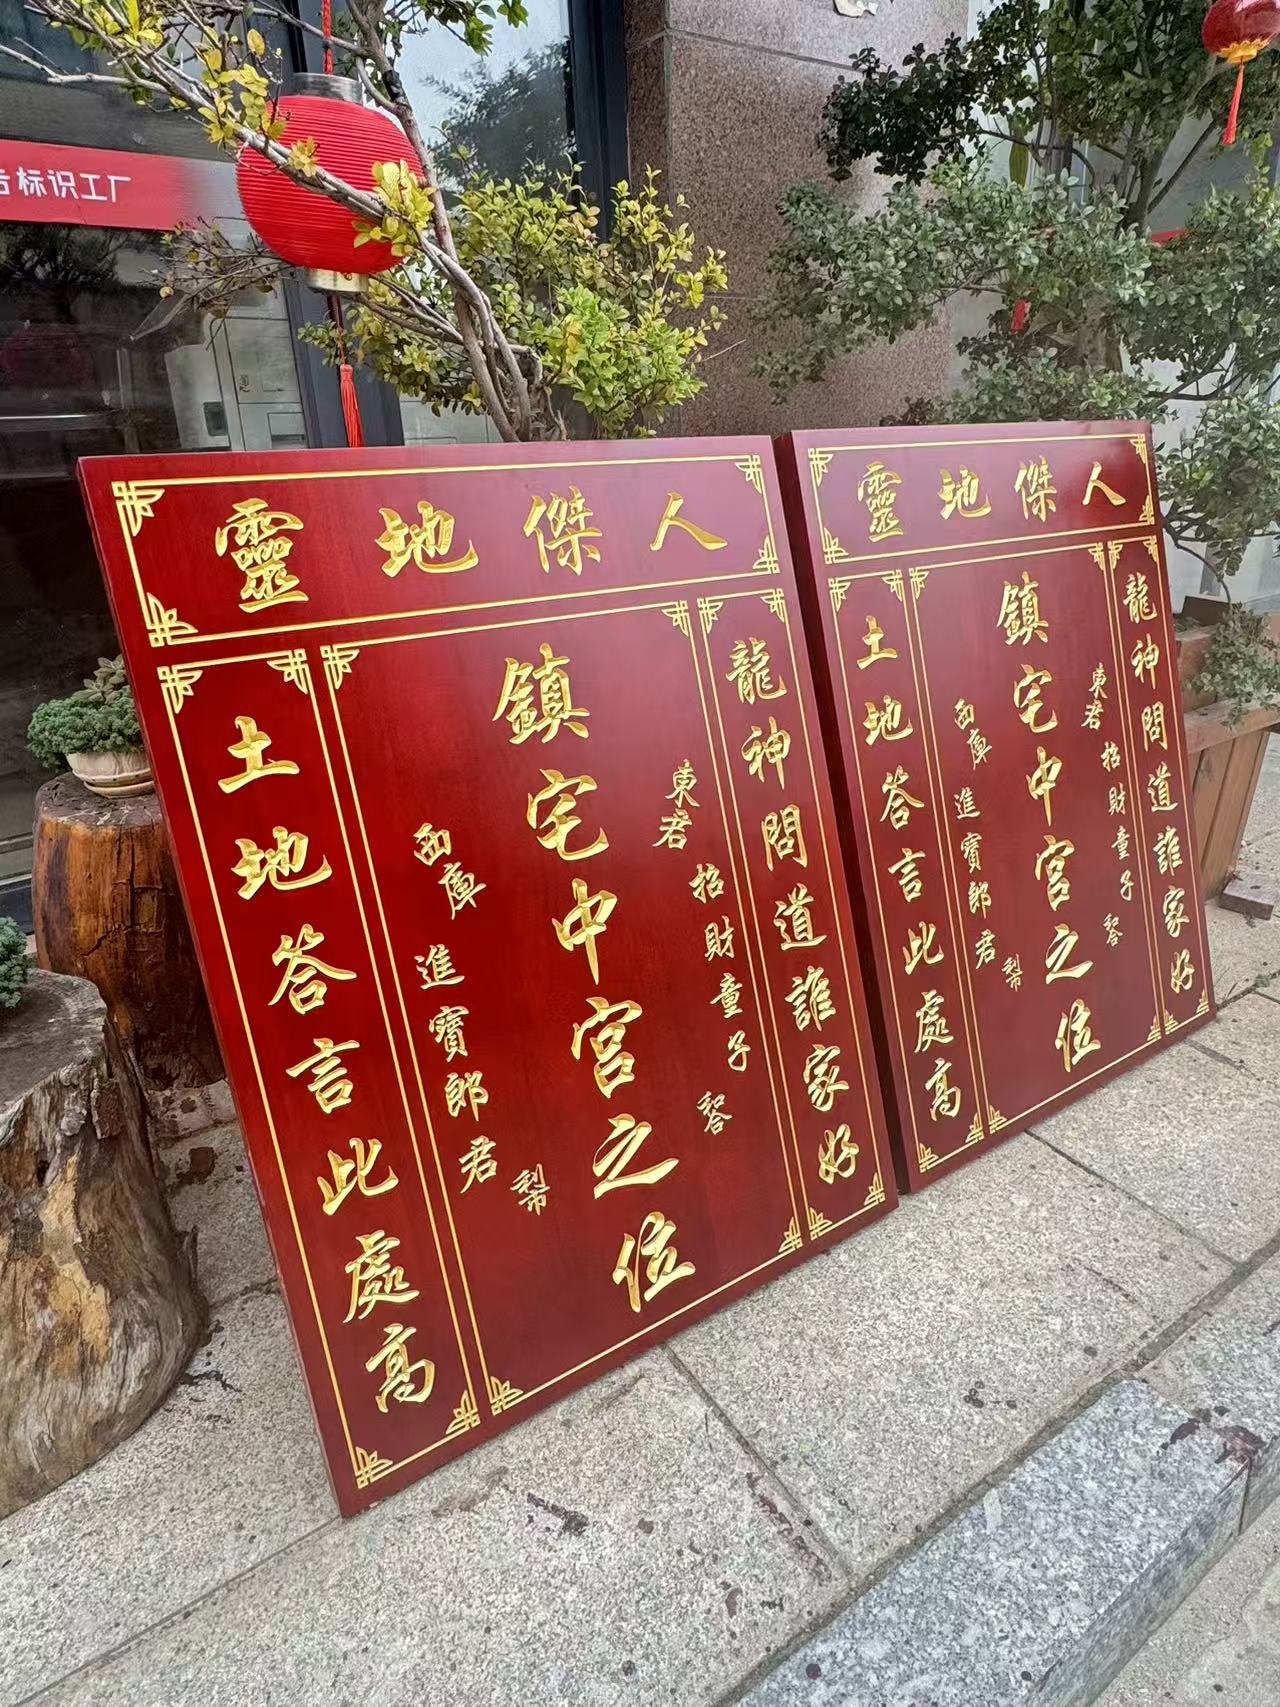 标识工厂
人傑地靈
龍神問道誰家好
東君 招財童子
鎮宅中宮之位
西庫 進寶郎君
土地答言此處高
人傑地靈
龍神問道誰家好
東君 招財童子
鎮宅中宮之位
西庫 進寶郎君
土地答言此處高